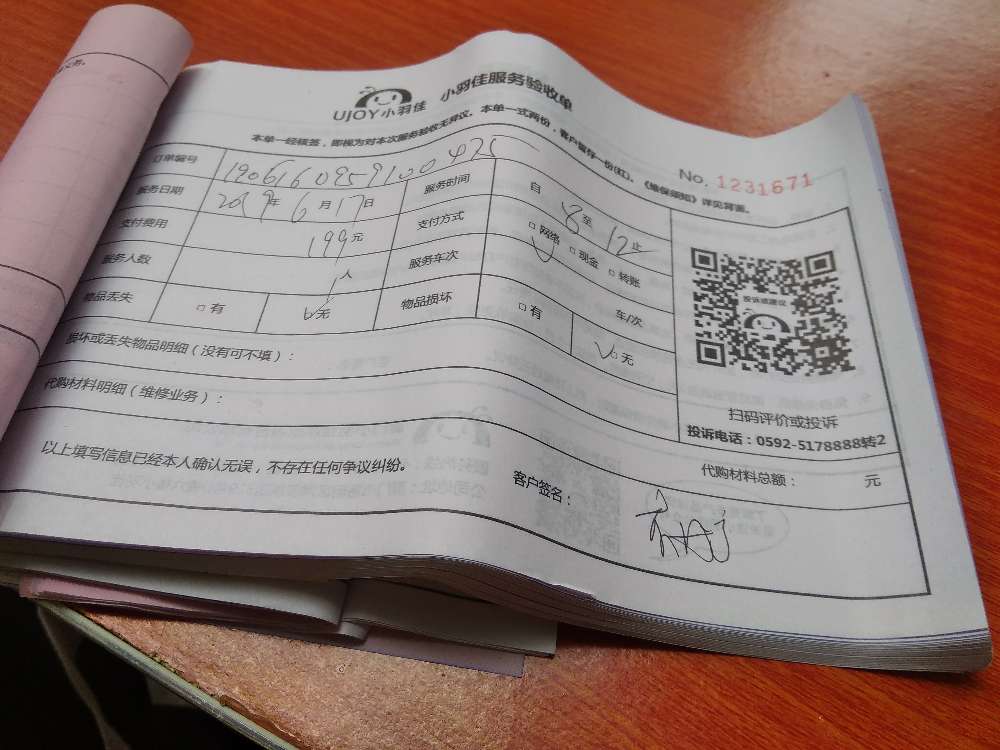 UJOY小羽佳 小羽佳服务验收单
本单一经核签，即视为对本次服务验收无异议。本单一式两份，客户留存一份(红)。《维保须知》详见背面。
No. 1231671
订单编号 1906160959100425
服务日期 2019年6月17日 服务时间 自 8 至 12 止
支付费用 199元 支付方式 □网络 □现金 □转账
服务人数 1人 服务车次 车/次
物品丢失 □有 □无 物品损坏 □有 □无
损坏或丢失物品明细（没有可不填）：
代购材料明细（维修业务）：
代购材料总额： 元
以上填写信息已经本人确认无误，不存在任何争议纠纷。
客户签名：
投诉或建议
扫码评价或投诉
投诉电话：0592-5178888转2